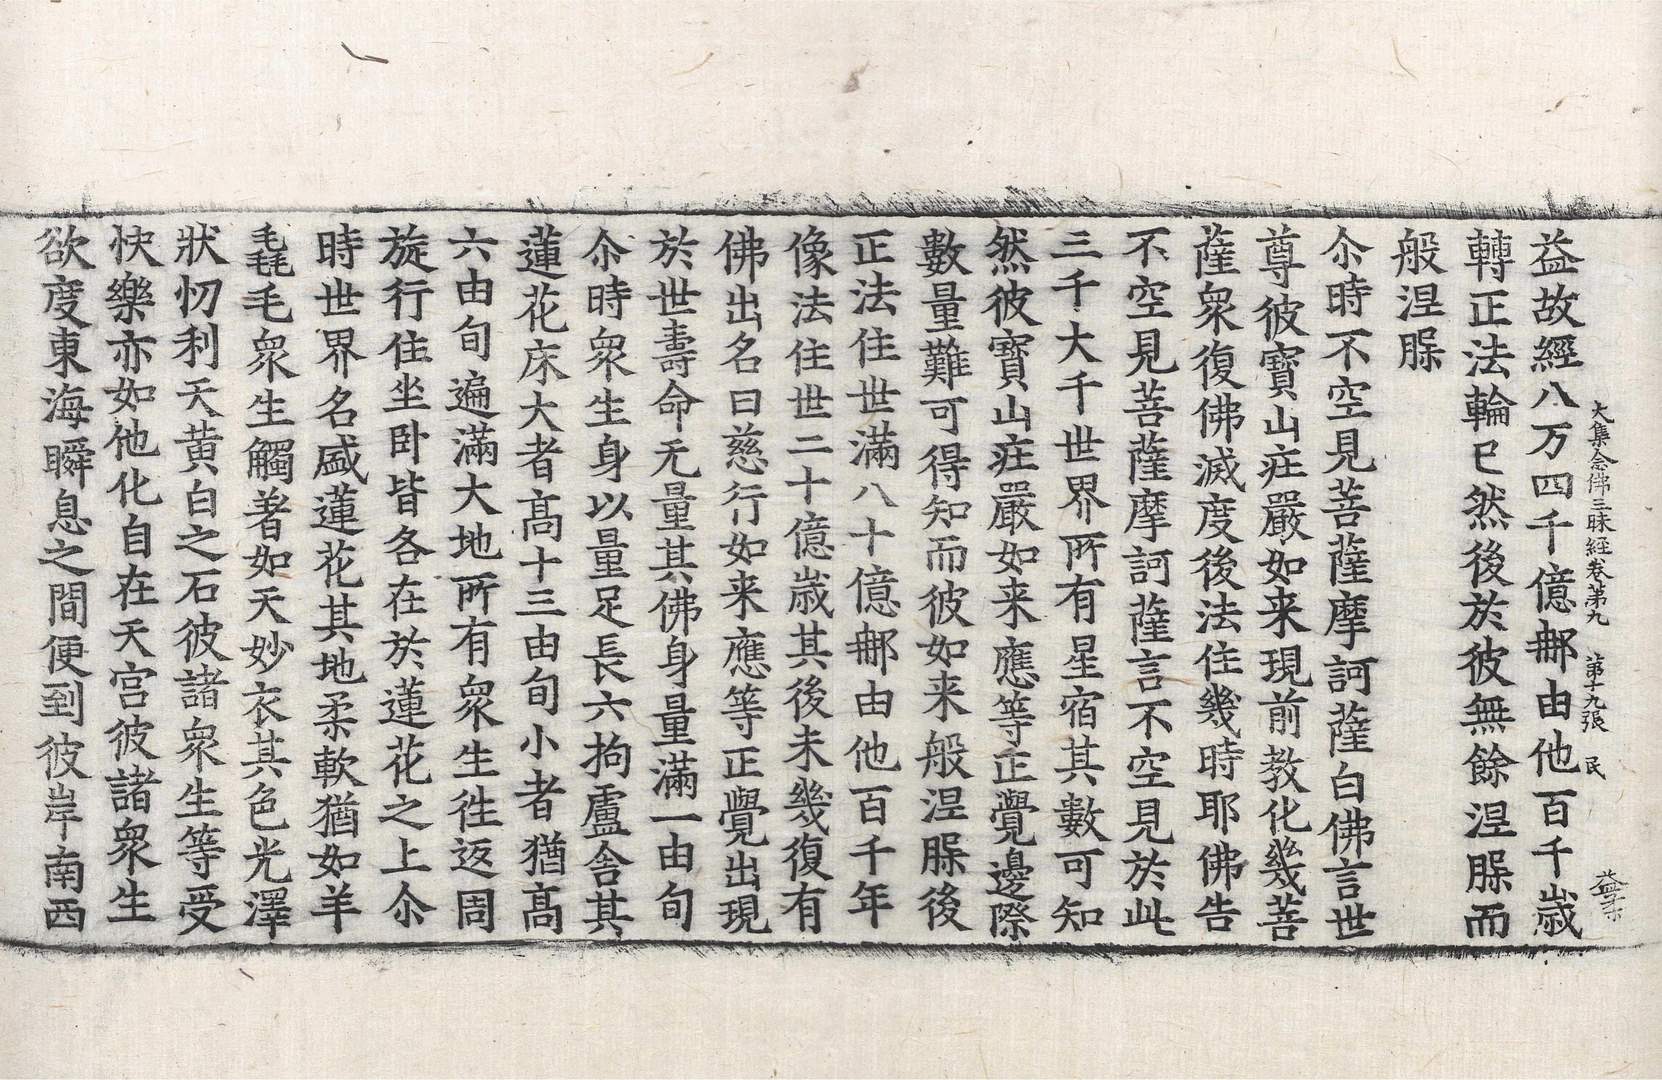 大集念佛三昧経卷第九 第十九張 民
益故經八万四千億郍由他百千歲
轉正法輪已然後於彼無餘涅槃而
般涅槃
尒時不空見菩薩摩訶薩白佛言世
尊彼寶山庄嚴如来現前教化幾菩
薩衆復佛滅度後法住幾時耶佛告
不空見菩薩摩訶薩言不空見於此
三千大千世界所有星宿其數可知
然彼寶山庄嚴如来應等正覺邊際
數量難可得知而彼如来般涅槃後
正法住世滿八十億郍由他百千年
像法住世二十億歲其後未幾復有
佛出名曰慈行如来應等正覺出現
於世壽命无量其佛身量滿一由旬
尒時衆生身以量足長六拘盧舍其
蓮花床大者髙十三由旬小者猶髙
六由旬遍滿大地所有衆生徃返周
旋行住坐卧皆各在於蓮花之上尒
時世界名盛蓮花其地柔軟猶如羊
毳毛衆生觸著如天妙衣其色光澤
狀忉利天黄白之石彼諸衆生等受
快樂亦如他化自在天宫彼諸衆生
欲度東海瞬息之間便到彼岸南西